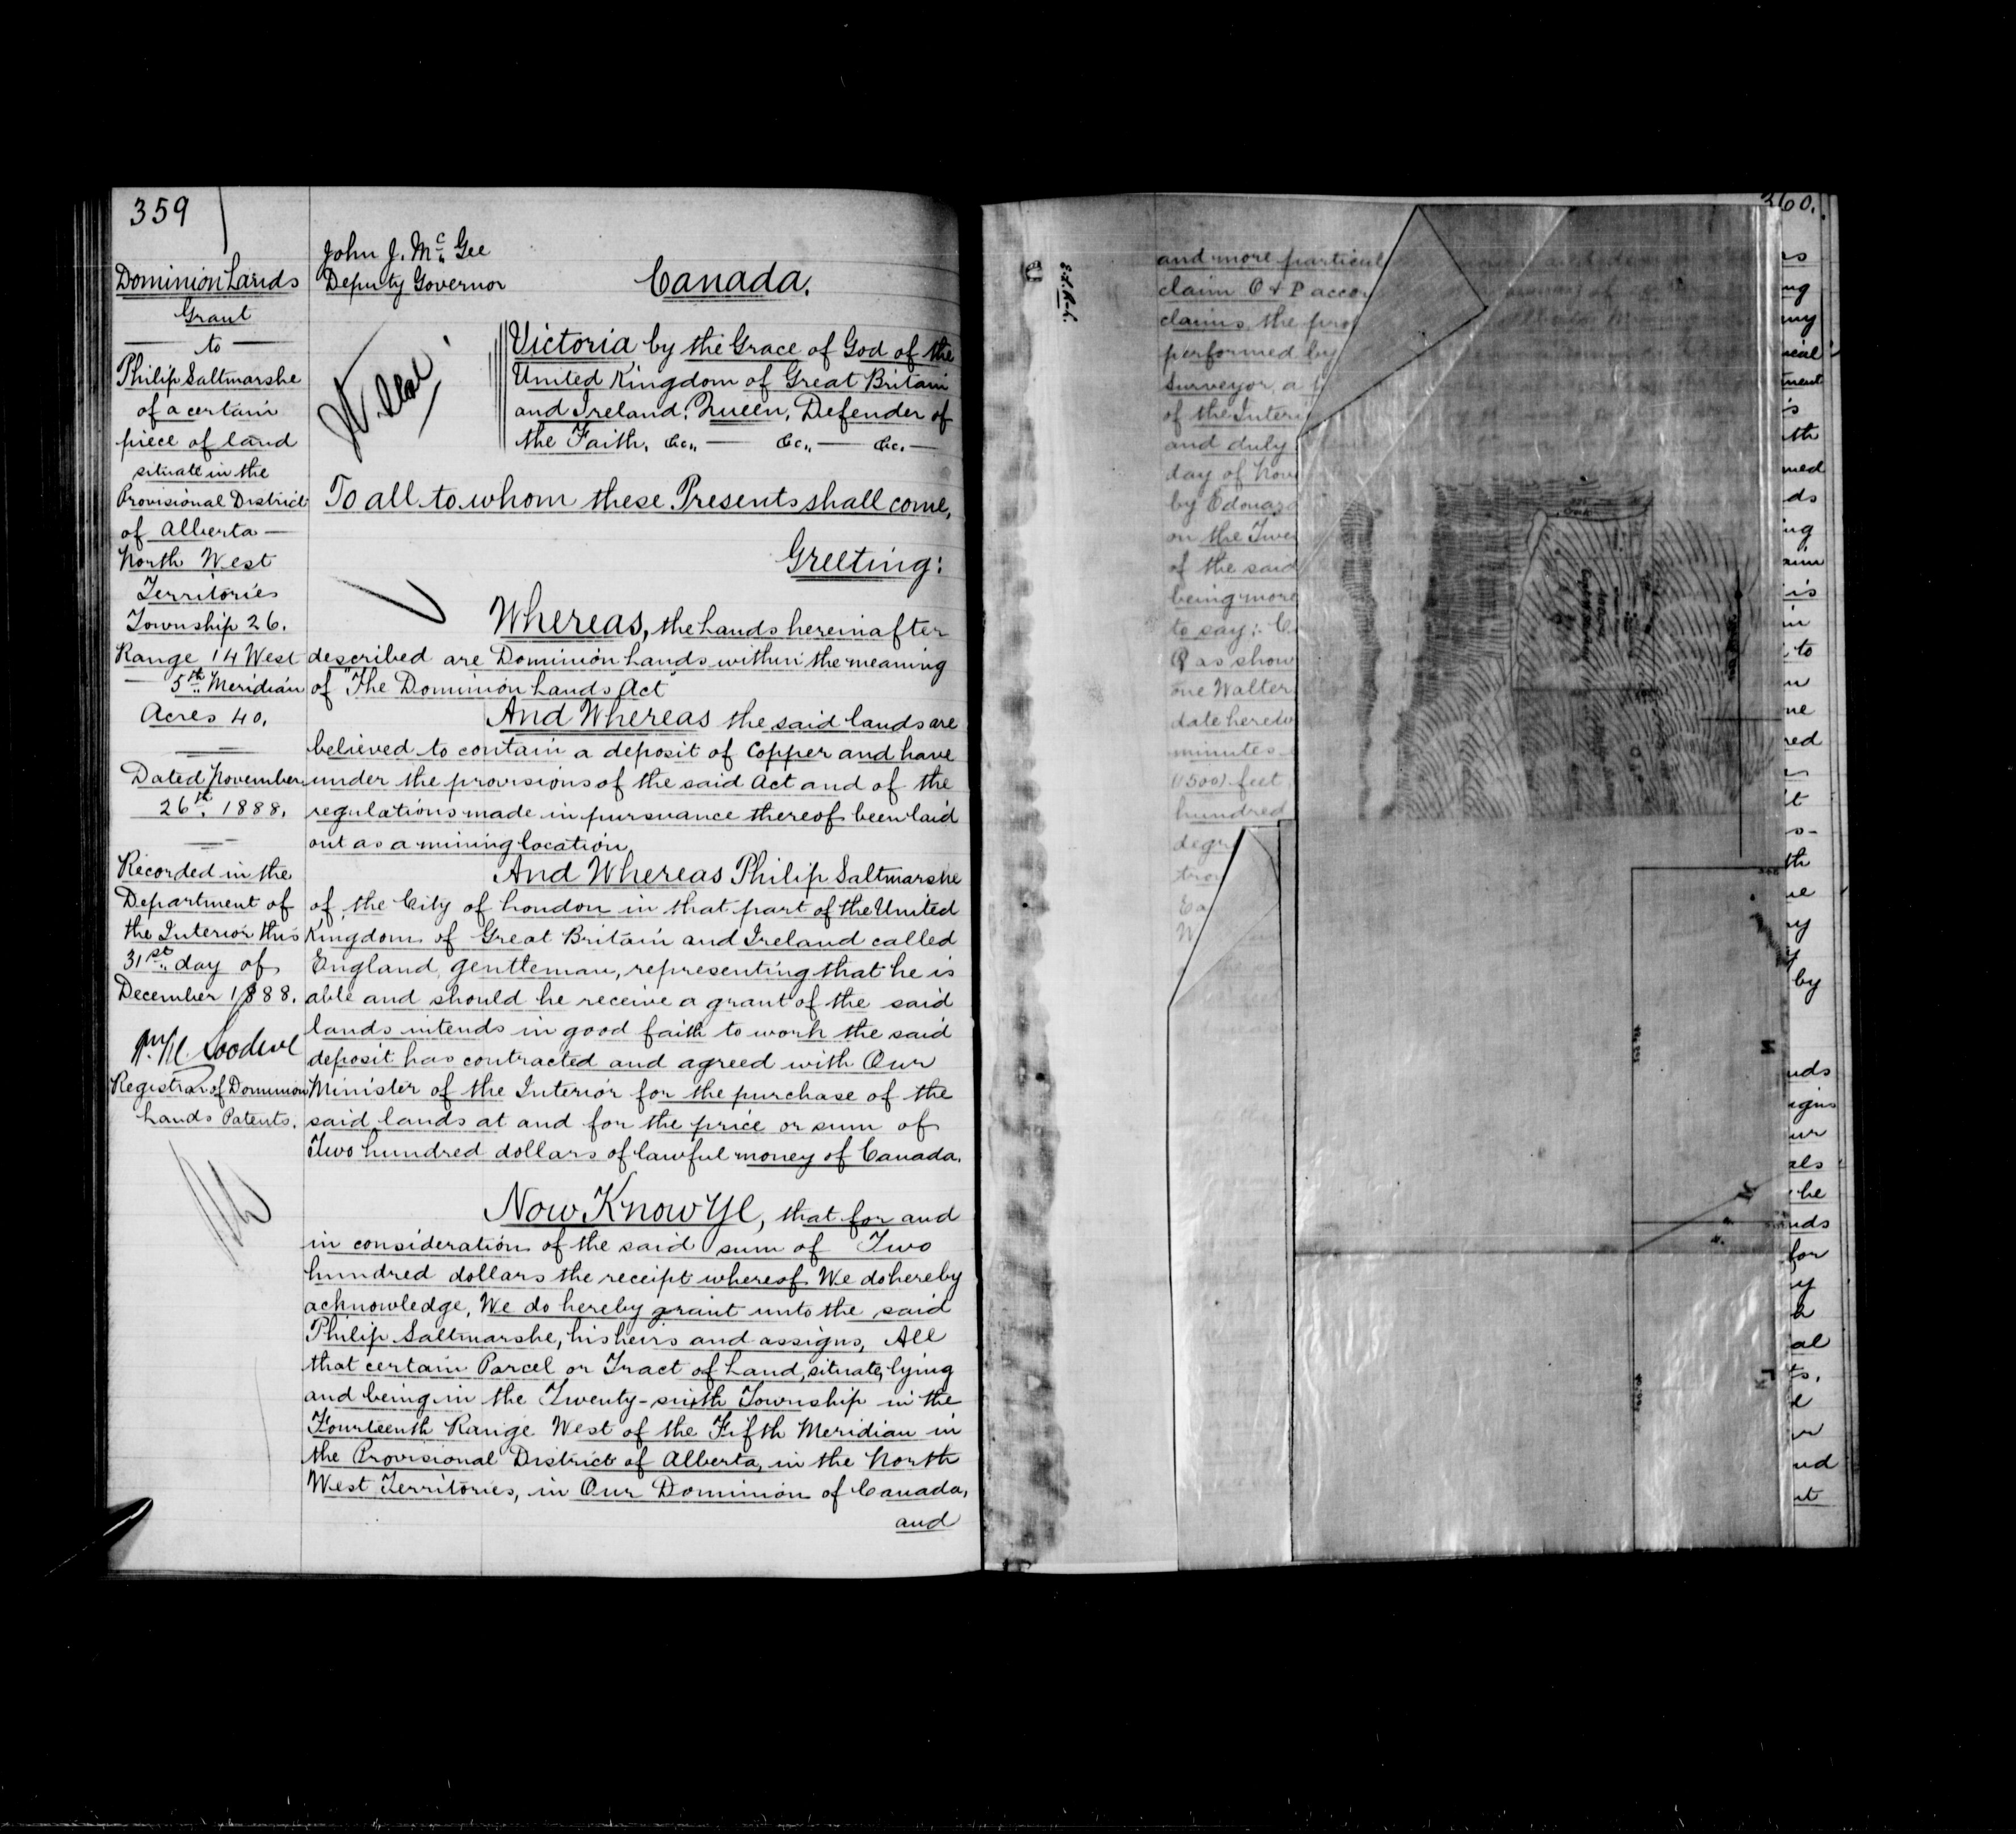 359
Dominion Lands
Grant
to
Philip Saltmarshe
of a certain
piece of land
situate in the
Provisional District
of Alberta —
North West
Territories
Township 26.
Range 14 West
5th Meridian
Acres 40.
Dated November
26th 1888.
Recorded in the
Department of
the Interior this
31st day of
December 1888.
Registrar of Dominion
Lands Patents.
John J. McGee
Deputy Governor
Canada.
Victoria by the Grace of God of the
United Kingdom of Great Britain
and Ireland, Queen, Defender of
the Faith, &c., — &c., — &c. —
To all to whom these Presents shall come,
Greeting:
Whereas, the Lands hereinafter
described are Dominion Lands within the meaning
of "The Dominion Lands Act"
And Whereas the said lands are
believed to contain a deposit of Copper and have
under the provisions of the said Act and of the
regulations made in pursuance thereof been laid
out as a mining location
And Whereas Philip Saltmarshe
of the City of London in that part of the United
Kingdom of Great Britain and Ireland called
England, gentleman, representing that he is
able and should he receive a grant of the said
lands intends in good faith to work the said
deposit has contracted and agreed with Our
Minister of the Interior for the purchase of the
said lands at and for the price or sum of
Two hundred dollars of lawful money of Canada.
Now Know Ye, that for and
in consideration of the said sum of Two
hundred dollars the receipt whereof We do hereby
acknowledge, We do hereby grant unto the said
Philip Saltmarshe, his heirs and assigns, All
that certain Parcel or Tract of Land, situate, lying
and being in the Twenty-sixth Township in the
Fourteenth Range West of the Fifth Meridian in
the Provisional District of Alberta, in the North
West Territories, in Our Dominion of Canada,
and
260.
and more particul
claim O & P accor
claims the pro
performed by
Surveyor, a
of the Interi
and duly
day of Nov
by Edouard
on the Twe
of the said
being more
to say: C
P as show
one Walter
date herew
minutes
(1500) feet
hundred
degr